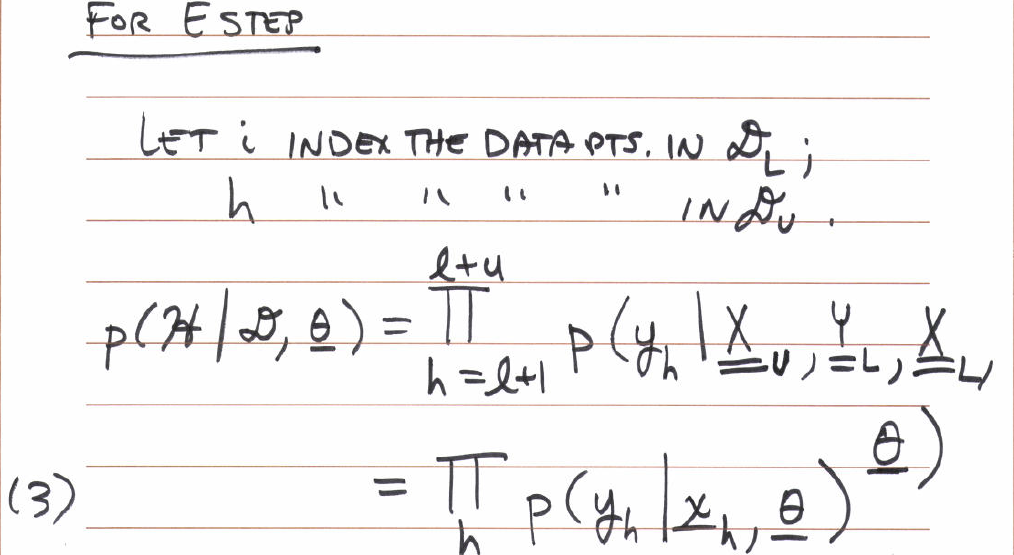 FOR E STEP
LET i INDEX THE DATA PTS. IN 𝒟_L ;
h " " " " IN 𝒟_U .
p(ℋ | 𝒟, θ̲) = ∏_{h=l+1}^{l+u} p(y_h | X̳_U, Y̳_L, X̳_L, θ̲)
(3) = ∏_h p(y_h | x̲_h, θ̲)